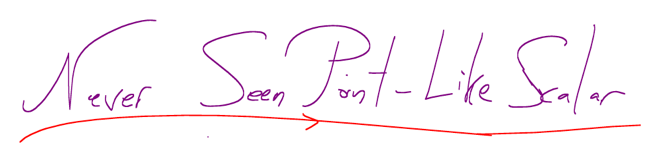 Never Seen Point-Like Scalar